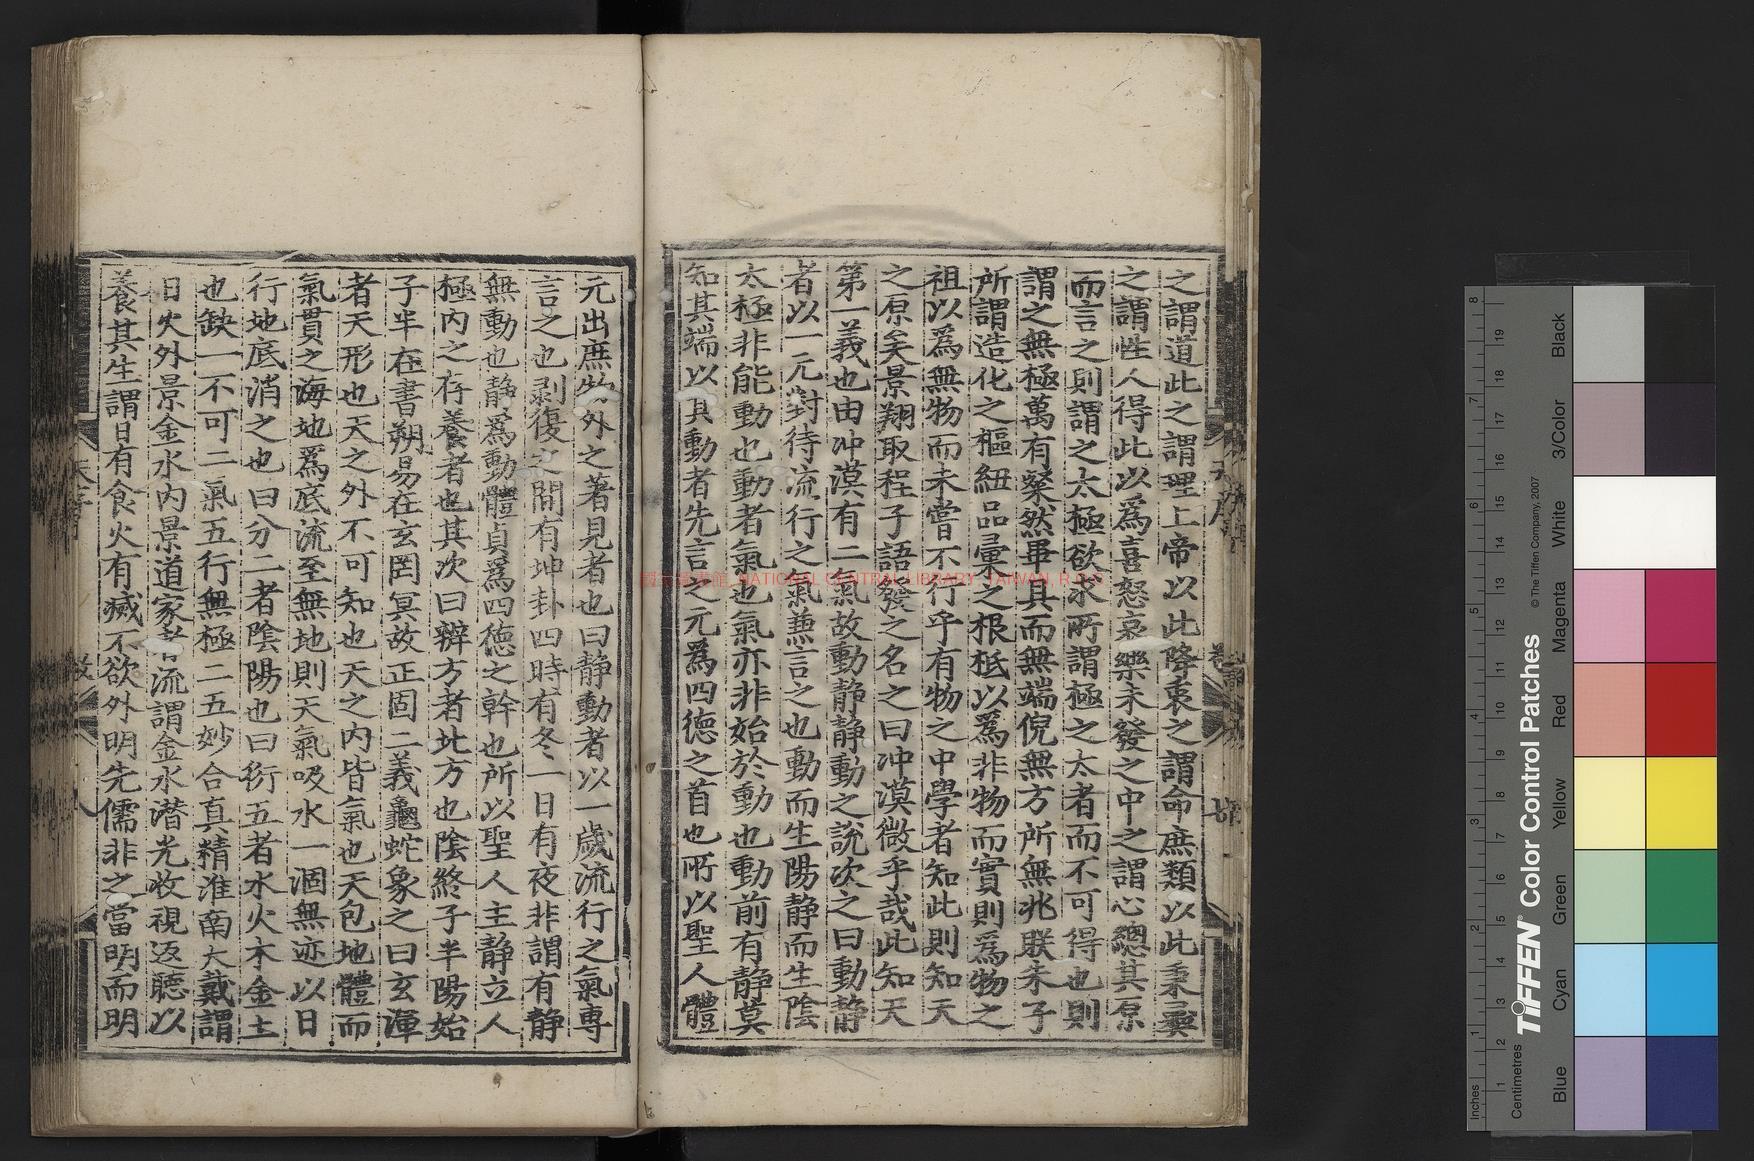 之謂道此之謂理上帝以此降衷之謂命庶類以此秉彝
之謂性人得此以爲喜怒哀樂未發之中之謂心總其原
而言之則謂之太極欲求所謂極之太者而不可得也則
謂之無極萬有粲然畢具而無端倪無方所無兆朕朱子
所謂造化之樞紐品彙之根柢以爲非物而實則爲物之
祖以爲無物而未嘗不行乎有物之中學者知此則知天
之原矣景翔取程子語發之名之曰冲漠微乎哉此知天
第一義也由冲漠有二氣故動静静動之說次之曰動静
者以一元對待流行之氣兼言之也動而生陽静而生陰
太極非能動也動者氣也氣亦非始於動也動前有静莫
知其端以其動者先言之元爲四德之首也所以聖人體
元出庶物外之著見者也曰静動者以一歲流行之氣専
言之也剥復之間有坤卦四時有冬一日有夜非謂有静
無動也静爲動體貞爲四德之幹也所以聖人主静立人
極内之存養者也其次曰辨方者北方也陰終子半陽始
子半在書朔易在玄罔冥故正固二義龜蛇象之曰玄渾
者天形也天之外不可知也天之内皆氣也天包地體而
氣貫之海地爲底流至無地則天氣吸水一涸無迹以日
行地底消之也曰分二者陰陽也曰衍五者水火木金土
也缺一不可二氣五行無極二五妙合真精淮南大戴謂
日火外景金水内景道家者流謂金水潜光收視返聽以
養其生謂日有食火有滅不欲外明先儒非之當明而明
國家圖書館, NATIONAL CENTRAL LIBRARY, TAIWAN, R.O.C
TIFFEN® Color Control Patches
© The Tiffen Company, 2007
Inches
Centimetres
Blue
Cyan
Green
Yellow
Red
Magenta
White
3/Color
Black